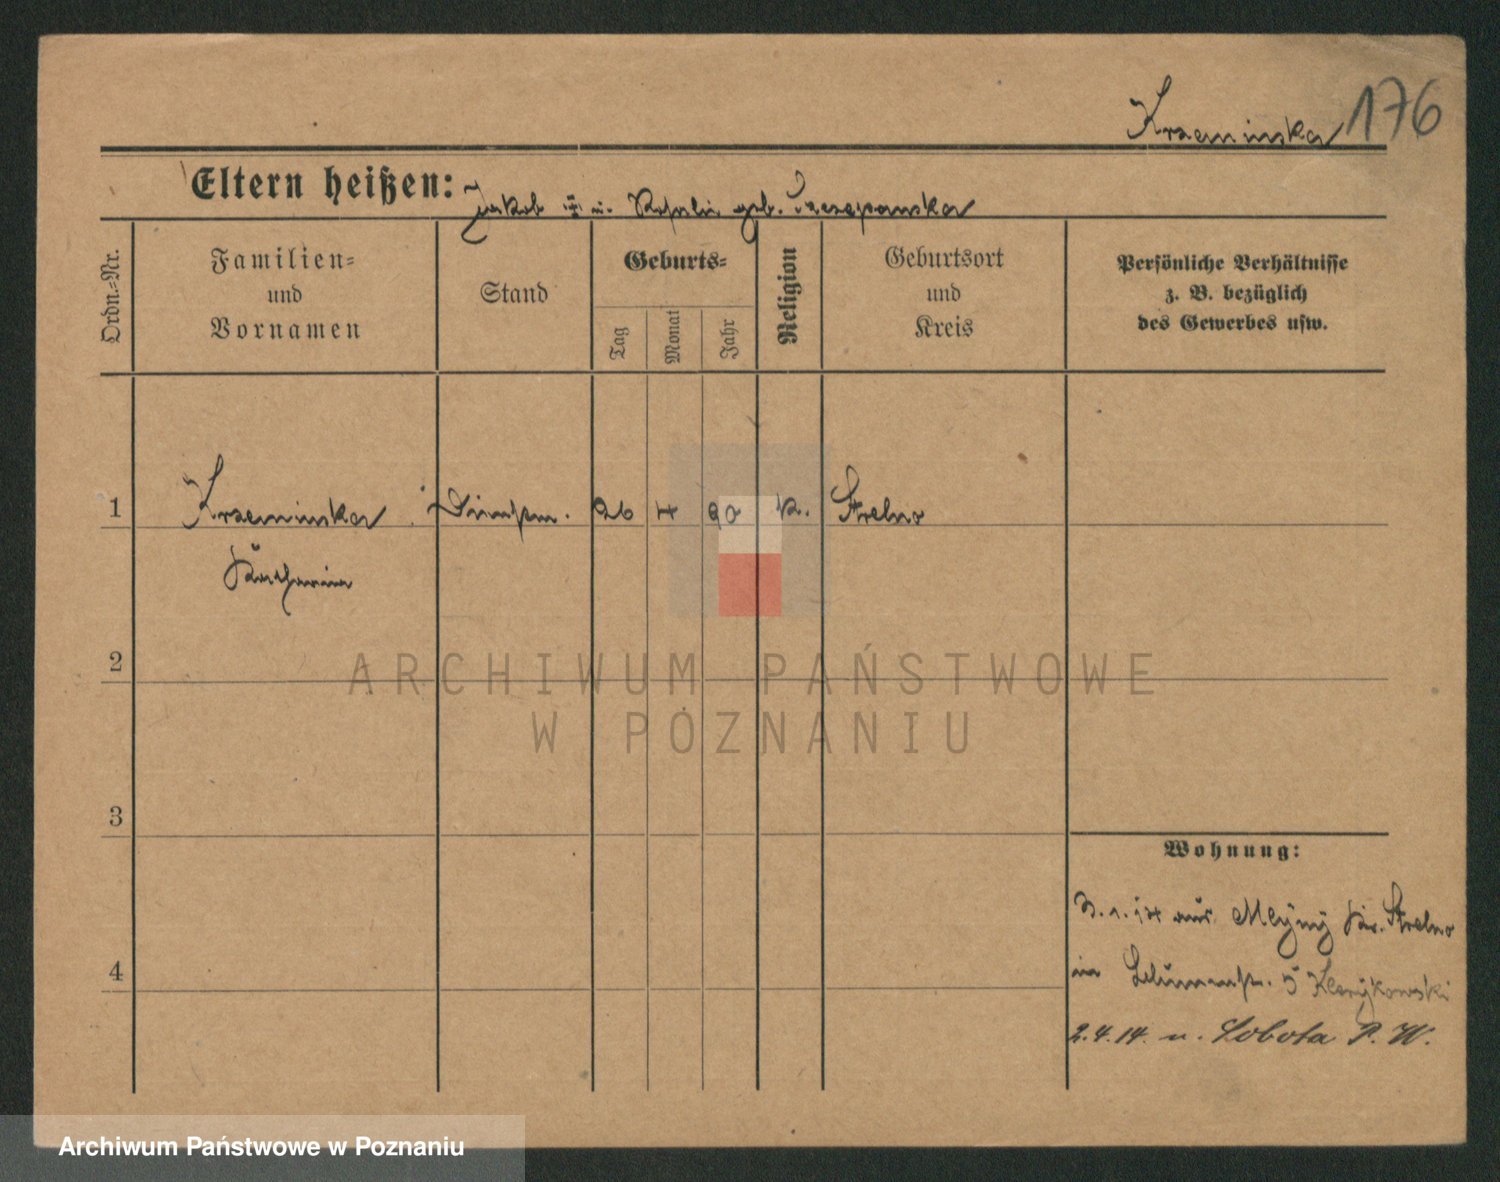 Krzeminska 176
Eltern heißen: Jakob u. Rosalie geb.
Ordn.-Nr.
Familien-
und
Vornamen
Stand
Geburts-
Tag
Monat
Jahr
Religion
Geburtsort
und
Kreis
Persönliche Verhältnisse
z. B. bezüglich
des Gewerbes usw.
1 Krzeminska Dienstm. 26 4 90 k. Strelno
Katharina
2
ARCHIWUM PAŃSTWOWE
W POZNANIU
3
Wohnung:
aus Mlyny Kr. Strelno
4
in Blumenstr. 5
2.4.14. n. Lobota P. W.
Archiwum Państwowe w Poznaniu